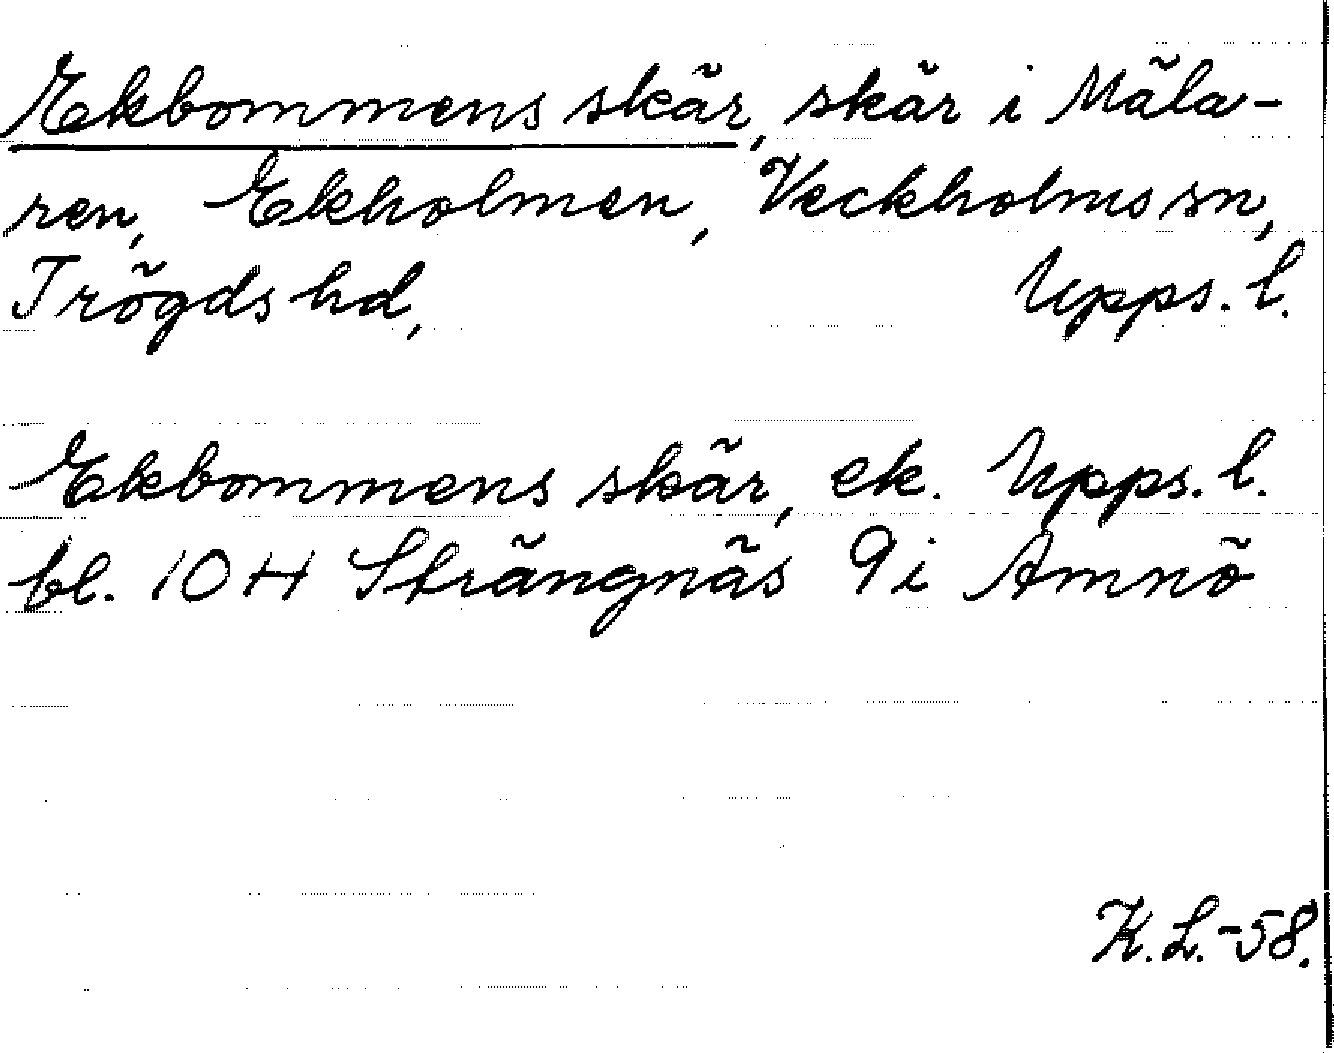 Ekbommens skär, skär i Mäla-
ren, Ekholmen, Veckholms sn,
Trögds hd, Upps. l.
Ekbommens skär, ek. Upps. l.
bl. 10 H Strängnäs 9i Amnö
K.L.-58.